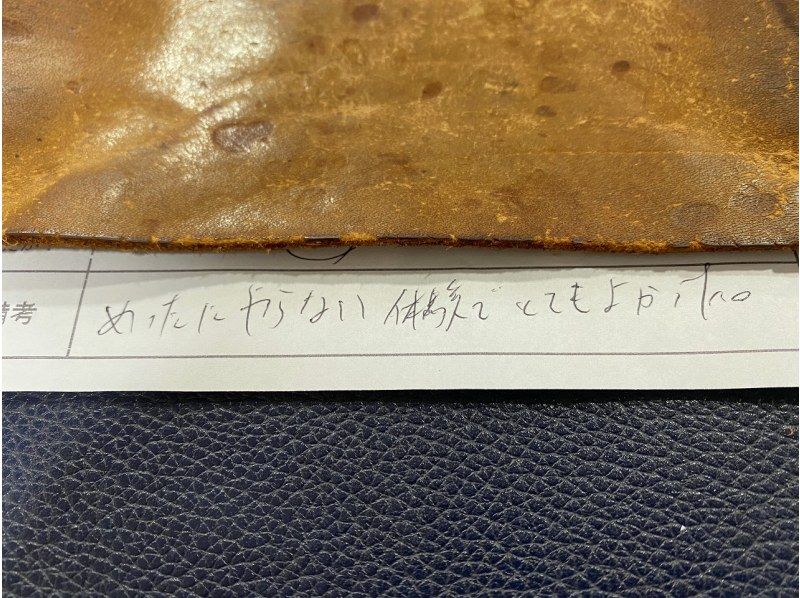 備考
めったにやらない体験でとてもよかった。